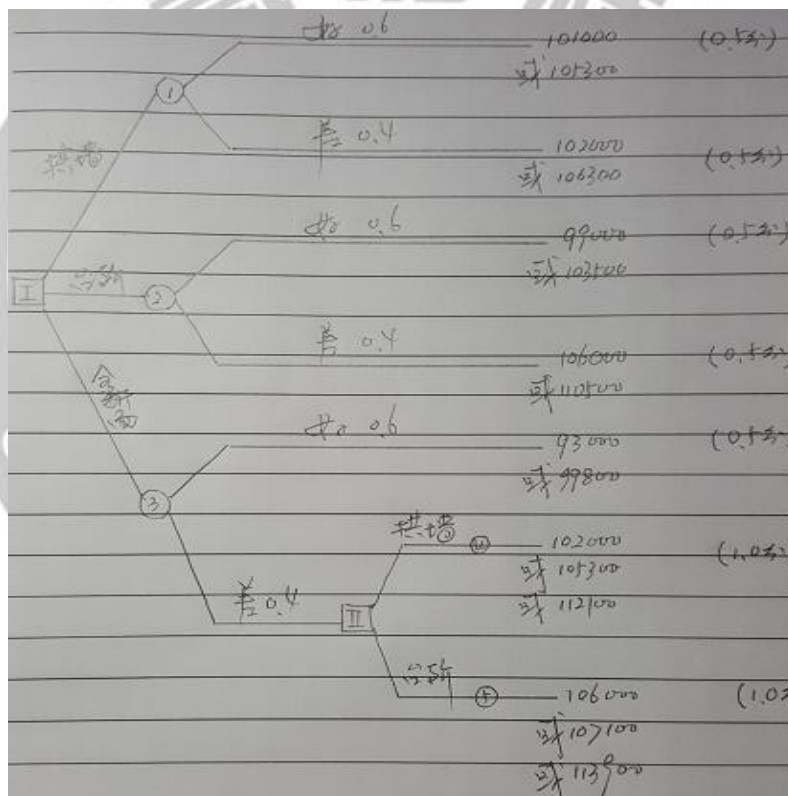 好 0.6 101000 (0.5分)
或 105300
①
差 0.4 102000 (0.5分)
拱墙
或 106300
好 0.6 99000 (0.5分)
或 103500
I 台阶 ②
差 0.4 106000 (0.5分)
或 110500
全断面
好 0.6 93000 (0.5分)
或 99800
③
拱墙 ④ 102000 (1.0分
或 105300
差 0.4 II 或 112100
台阶 ⑤ 106000 (1.0
或 107100
或 113900